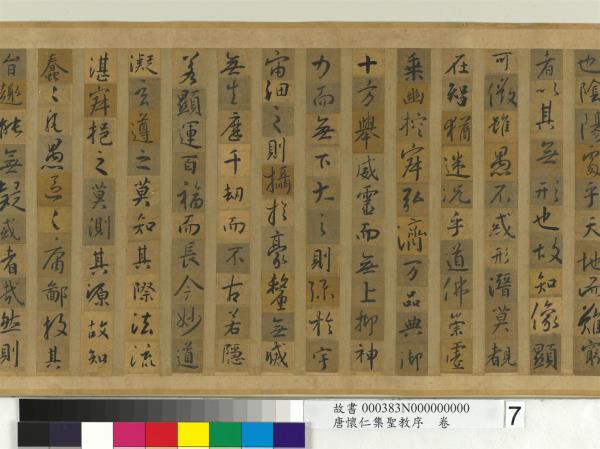 也陰陽處乎天地而難窮
者以其無形也故知像顯
可徵雖愚不惑形潛莫覩
在智猶迷況乎道佛崇虛
乘幽控寂弘濟万品典御
十方舉威靈而無上抑神
力而無下大之則彌於宇
宙細之則攝於豪釐無滅
無生歷千劫而不古若隱
若顯運百福而長今妙道
凝玄遵之莫知其際法流
湛寂挹之莫測其源故知
蠢〻凡愚區〻庸鄙投其
旨趣能無疑惑者哉然則
故書 000383N000000000
唐懷仁集聖教序 卷
7